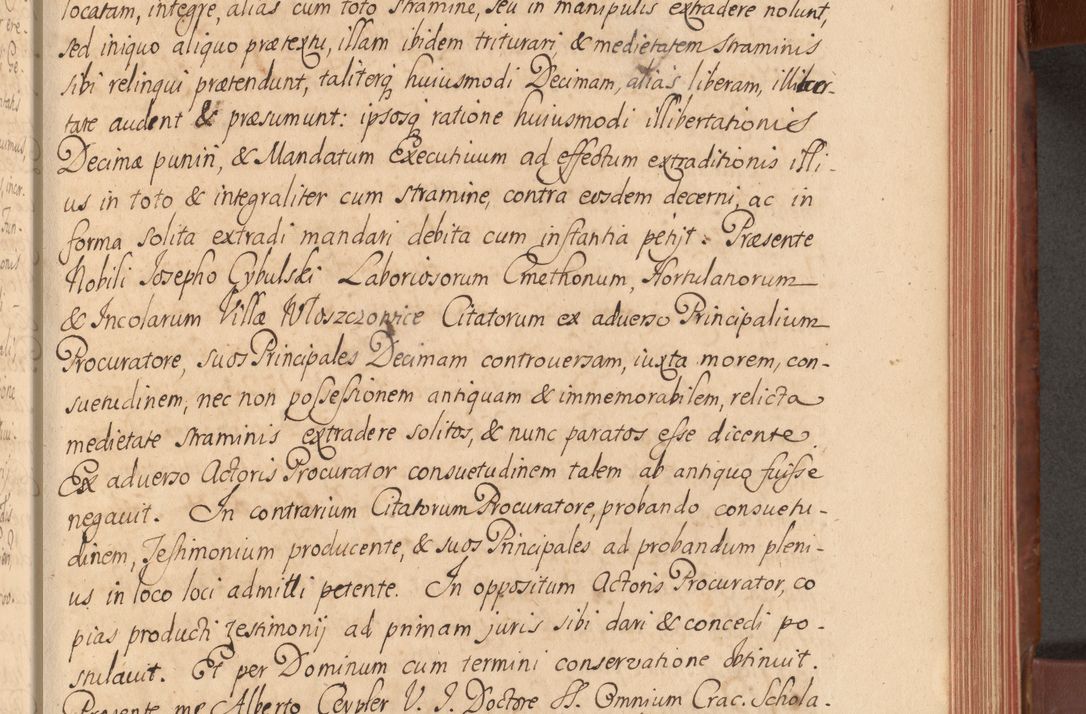 locatam, integre, alias cum toto stramine, seu in manipulis extradere nolunt,
sed iniquo aliquo prætextu, illam ibidem triturari, & medietatem straminis
sibi relinqui prætendunt, taliterq huiusmodi Decimam, alias liberam, illiber-
tate audent & præsumunt: ipsosq ratione huiusmodi illibertationis
Decimæ puniri, & Mandatum Executiuum ad effectum extraditionis illi-
us in toto & integraliter cum stramine, contra eosdem decerni, ac in
forma solita extradi mandari debita cum instantia petijt. Præsente
Nobili Josepho Cybulski Laboriosorum Cmethonum, Hortulanorum
& Incolarum Villæ Włoszczowice Citatorum ex aduerso Principalium
Procuratore, suos Principales Decimam controuersam, iuxta morem, con-
suetudinem, nec non possessionem antiquam & immemorabilem, relicta
medietate straminis extradere solitos, & nunc paratos esse dicente.
Ex aduerso Actoris Procurator consuetudinem talem ab antiquo fuisse
negauit. In contrarium Citatorum Procuratore, probando consuetu-
dinem, Testimonium producente, & suos Principales ad probandum pleni-
us in loco loci admitti petente. In oppositum Actoris Procurator, co
pias producti Testimonij ad primam juris sibi dari & concedi po-
stulauit. Et per Dominum cum termini conservatione obtinuit.
Præsente me Alberto Ceypler V. J. Doctore SS. Omnium Crac. Schola-